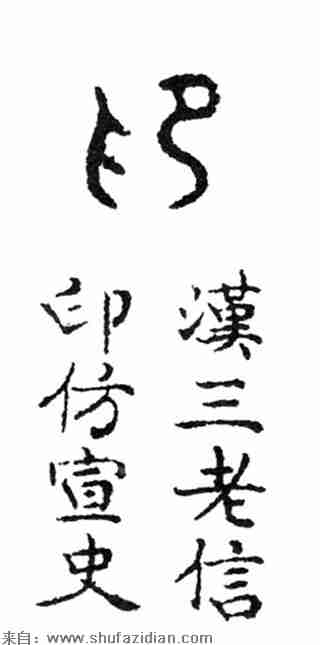 印
漢三老信
印仿宣史
来自：www.shufazidian.com